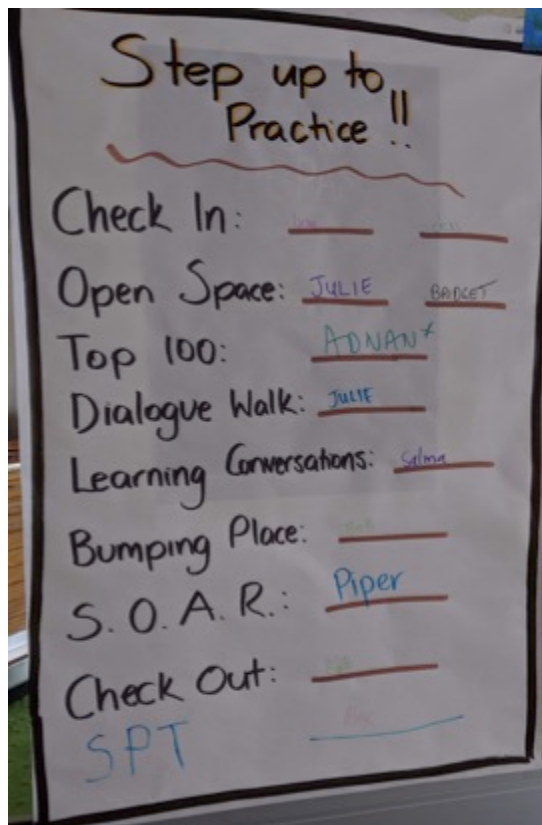 Step up to
Practice!!
Check In:
Open Space: JULIE BADGET
Top 100: ADNAN*
Dialogue Walk: JULIE
Learning Conversations: Salma
Bumping Place:
S.O.A.R.: Piper
Check Out:
SPT